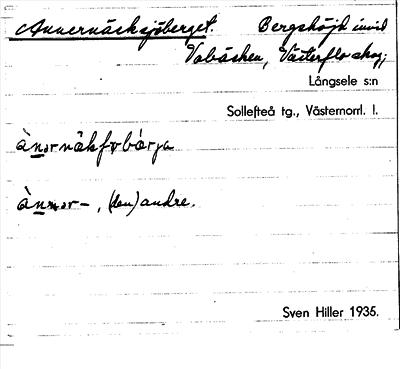 Annernäcksjöberget. Bergshöjd invid
Vabäcken, Västerflo skog;
Långsele s:n
Sollefteå tg., Västernorrl. l.
ànərnäkføbárja
ànnər-, (den) andre.
Sven Hiller 1935.